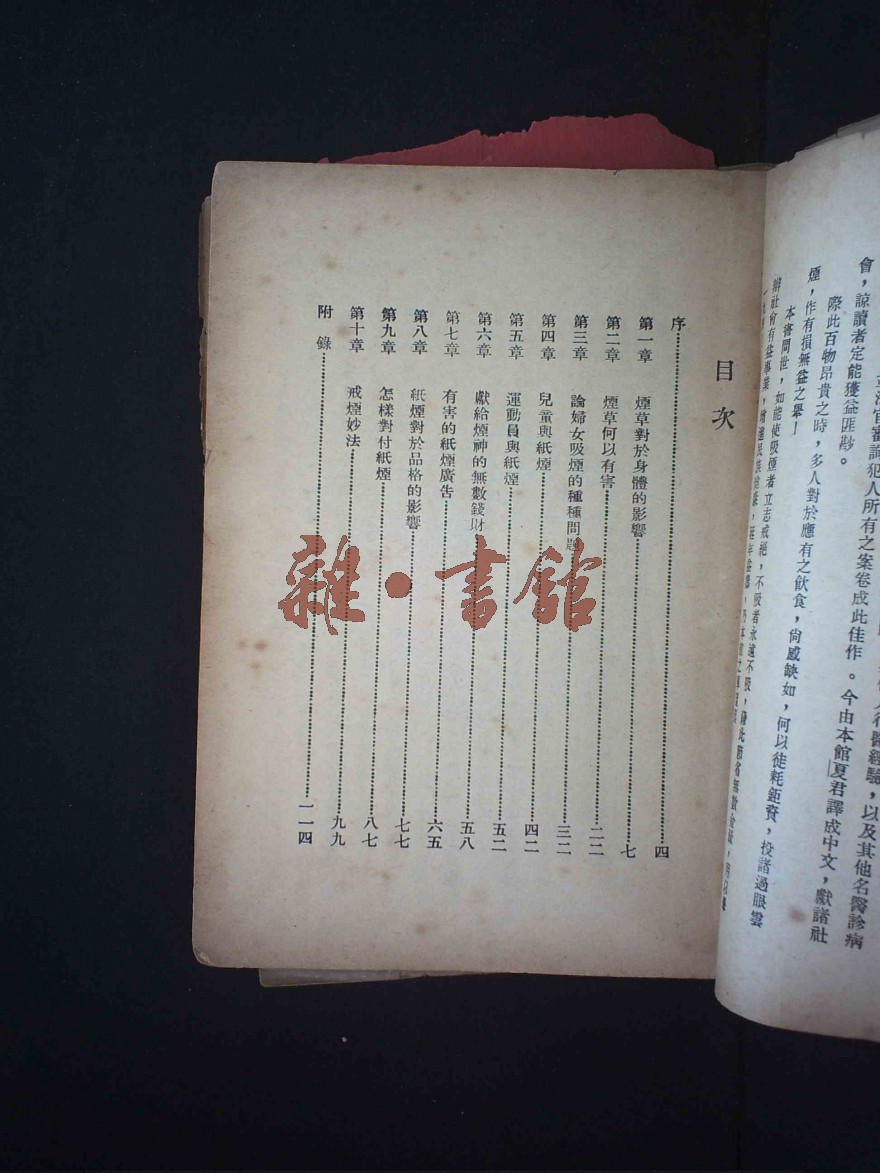 會，諒讀者定能獲益匪尠。
際此百物昂貴之時，多人對於應有之飲食，尙感缺如，何以徒耗鉅資，投諸過眼雲
煙，作有損無益之舉！
本書問世，如能使吸煙者立志戒絕，不吸者永遠不吸，
辦社會有益事業，
立法官審詢犯人所有之案卷成此佳作。今由本館夏君譯成中文，獻諸社
行醫經驗，以及其他名醫診病
目次
序 四
第一章 煙草對於身體的影響 七
第二章 煙草何以有害 二二
第三章 論婦女吸煙的種種問題 三二
第四章 兒童與紙煙 四二
第五章 運動員與紙煙 五二
第六章 獻給煙神的無數錢財 五八
第七章 有害的紙煙廣告 六五
第八章 紙煙對於品格的影響 七七
第九章 怎樣對付紙煙 八七
第十章 戒煙妙法 九九
附錄 一一四
雜·書館